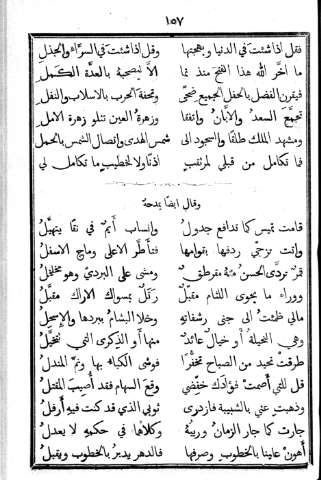 ١٥٧
فقل اذا شئت في الدنيا وبهجتها وقل اذا شئت في السراء والجذل
ما اخر الله هذا الفتح منذ نما الا ليصحبه بالعدة الكمل
فيقرن الفضل بالحفل الجميع ضحى وتحفة الحرب بالاسلاب والنفل
تجمع السعد والابان وانفا وزهرة العين تتلو زهرة الامل
ومشهد الملك طلقا والسجود الى شمس الهدى واتصال الشمس بالحمل
فما تكامل من قبلي لمرتقب اذنا ولا لخطيب ما تكامل لي
وقال ايضا يمدحه
قامت تميس كما تدافع جدول وانساب أيم في نقا يتهيل
وانت تزجي ردفها بقوامها فتأطر الاعلى وماج الاسفل
قمر تردى الحسن منه مقرطق ومشى على البردي وهو مخلخل
ووراء ما يحوى اللثام مقبل رتل بمسواك الاراك مقبل
مالي ظمئت الى جنى رشفاته وخلا البشام ببردها والاسحل
وهي البخيلة أو خيال عائد منها أو الذكرى التي تتخيل
طرقت تحيد من الصباح تخفرا فوشى الكباء بها ونم المندل
قل للتي أصمت فؤادك خفضي وقع السهام فقد أصيب المقتل
وذهبت عني بالشبيبة فازدري ثوبي الذي قد كنت فيه أرفل
جارت كما جار الزمان وريبه وكلاهما في حكمه لا يعدل
أهون علينا بالخطوب وصرفها فالدهر يدبر بالخطوب ويقبل